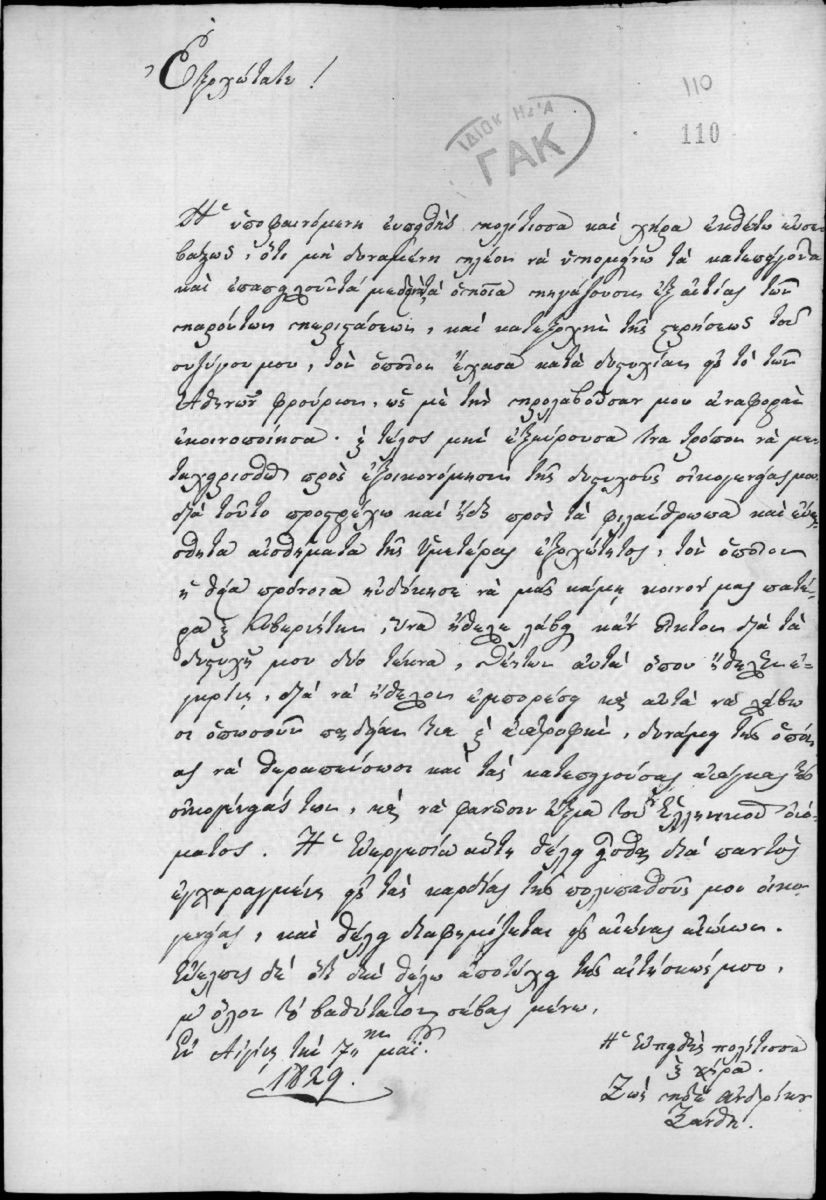 Ἐξοχώτατε!
110
ΙΔΙΟΚΤΗΣΙΑ
ΓΑΚ
110
Ἡ ὑποφαινόμενη εὐπειθὴς πολίτισσα καὶ χήρα ἐκθέτω εὐσε
βάστως, ὅτι μὴ δυναμένη πλέον νὰ ὑπομείνω τὰ κατεπείγοντα
καὶ ἐπαπειλοῦντά με δεινὰ ὁποῖα πηγάζουσιν ἐξ αἰτίας τῶν
παρόντων περιστάσεων, καὶ κατεξοχὴν τῆς στερήσεως τοῦ
συζύγου μου, τὸν ὁποῖον ἔχασα κατὰ δυστυχίαν εἰς τὸ τῶν
Ἀθηνῶν φρούριον, ὡς μὲ τὴν προλαβοῦσαν μου ἀναφορὰν
ἐκοινοποίησα. τέλος μὴν ἐξεύρουσα ἕνα τρόπον νὰ με
ταχειρισθῶ πρὸς ἐξοικονόμησιν τῆς δυστυχοῦς οἰκογενείας μου,
διὰ τοῦτο προστρέχω καὶ ἤδη πρὸς τὰ φιλάνθρωπα καὶ εὐαί
σθητα αἰσθήματα τῆς ὑμετέρας ἐξοχώτητος, τὸν ὁποῖον
ἡ θεία πρόνοια ηὐδόκησε νὰ μᾶς κάμῃ κοινόν μας πατέ
ρα κυβερνήτην, ἵνα ἤθελε λάβῃ κἂν οἶκτον διὰ τὰ
δυστυχῆ μου δύο τέκνα, θέττων αὐτὰ ὅπου ἤθελεν ἐγ
κρίνει, διὰ νὰ ἤθελον ἐμπορέσῃ καὶ αὐτὰ νὰ λάβω
σι ὁπωσοῦν παιδείαν τινα ἀνατροφὴν, δυνάμει τῆς ὁποί
ας νὰ θεραπεύσωσι καὶ τὰς κατεπειγούσας ἀνάγκας τῆς
οἰκογενείας των, καὶ νὰ φανῶσιν ἄξια τοῦ Ἑλληνικοῦ ὀνό
ματος. Ἡ εὐεργεσία αὕτη θέλει εἶσθαι διὰ παντὸς
ἐγχαραγμένη εἰς τὰς καρδίας τῆς πολυπαθοῦς μου οἰκο
γενείας, καὶ θέλει διαφημίζεται εἰς αἰώνας αἰώνων.
Εὔελπις δὲ ὅτι δὲν θέλω ἀποτύχῃ τῆς αἰτήσεώς μου,
μ' ὅλον τὸ βαθύτατον σέβας μένω.
Ἐν Αἰγίνῃ τὴν 7ην μαΐ.
1829.
Ἡ εὐπειθὴς πολίτισσα
χήρα.
Ζωὴ ποτὲ ἀνδρίκου
Ξάνθη.